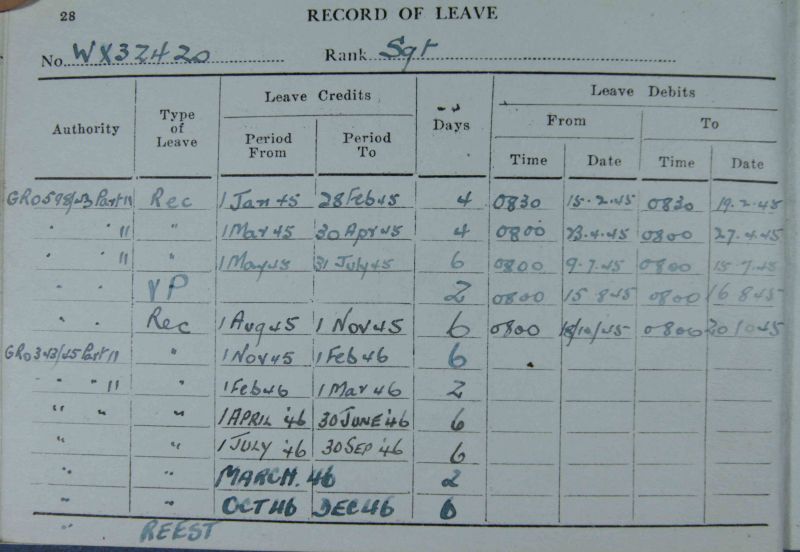 28 RECORD OF LEAVE
No. WX32420 Rank Sgt
Authority Type of Leave Leave Credits Days Leave Debits
Period From Period To From To
Time Date Time Date
GRO598/43 Part 11 Rec 1 Jan 45 28 Feb 45 4 0830 15.2.45 0830 19.2.45
" " 11 " 1 Mar 45 30 Apr 45 4 0800 23.4.45 0800 27.4.45
" " 11 " 1 May 45 31 July 45 6 0800 9.7.45 0800 15.7.45
" " VP 2 0800 15 8 45 0800 16 8 45
" " Rec 1 Aug 45 1 Nov 45 6 0800 0800
GRO343/45 Part 11 " 1 Nov 45 1 Feb 46 6
" " 11 " 1 Feb 46 1 Mar 46 2
" " " 1 APRIL '46 30 JUNE '46 6
" " 1 JULY '46 30 SEP '46 6
" " MARCH. 46 2
" " OCT 46 DEC 46
" REEST